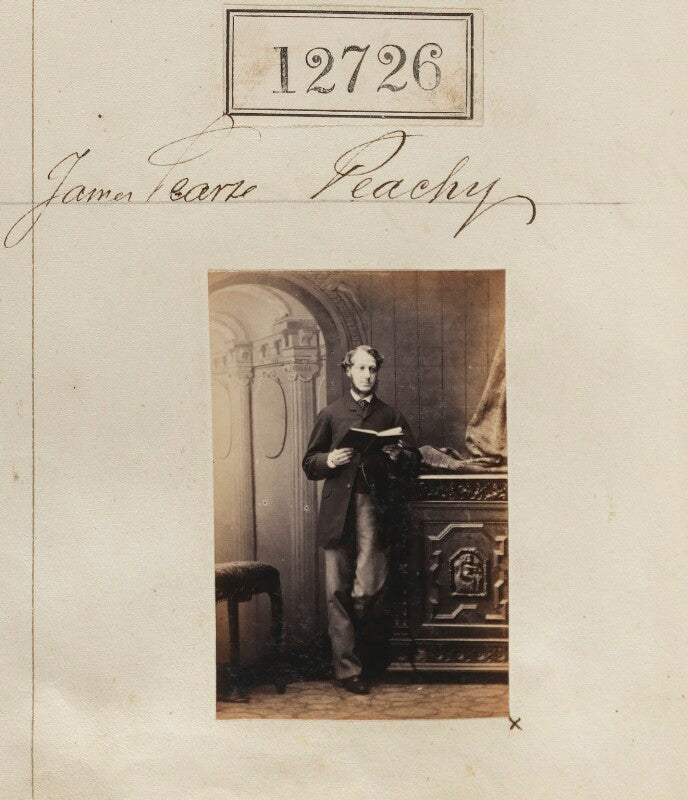 12726
James Pearse Peachy
x